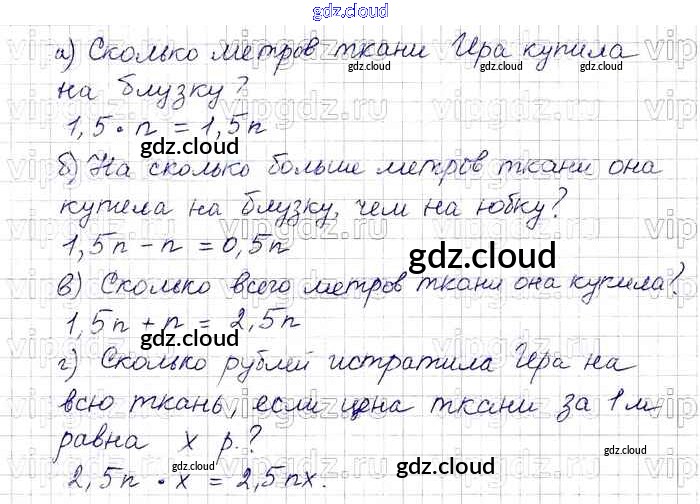 gdz.cloud
а) Сколько метров ткани Ира купила
на блузку?
1,5 • n = 1,5n
б) На сколько больше метров ткани она
купила на блузку, чем на юбку?
1,5n - n = 0,5n
в) Сколько всего метров ткани она купила?
1,5n + n = 2,5n
г) Сколько рублей истратила Ира на
всю ткань, если цена ткани за 1 м
равна x р.?
2,5n • x = 2,5nx.
gdz.cloud
gdz.cloud
gdz.cloud
gdz.cloud
gdz.cloud
gdz.cloud
gdz.cloud
gdz.cloud
gdz.cloud
gdz.cloud
gdz.cloud